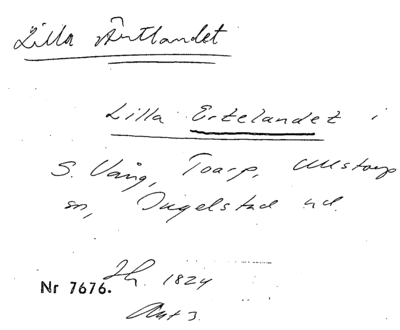 Lilla Ärtlandet
Lilla Ertelandet i
S. Vång, Toarp, Ullstorp
sn, Ingelstad hd.
Sk. 1824
Nr 7676.
Akt 3